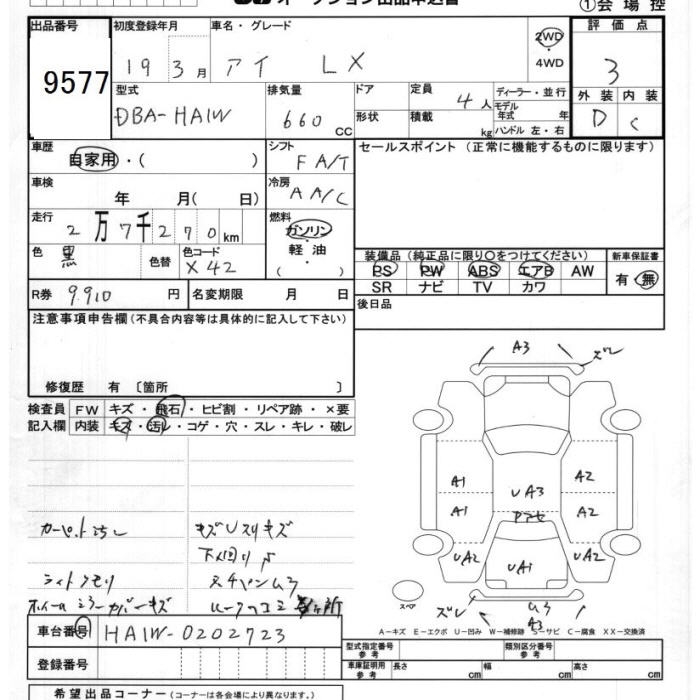 オークション出品申込書
①会場控
出品番号
9577
初度登録年月
車名・グレード
19 3月
アイ LX
2WD
・
4WD
評価点
3
型式
DBA-HA1W
排気量
660 CC
ドア
形状
定員
4人
積載
kg
ディーラー・並行
モデル
年式 年
ハンドル 左・右
外装 内装
D C
車歴
自家用・( )
シフト
F A/T
セールスポイント (正常に機能するものに限ります)
車検
年 月( 日)
冷房
A A/C
走行
2万7千270km
燃料
ガソリン
・
軽油
・
( )
色
黒
色替
色コード
X42
装備品(純正品に限り○をつけてください)
新車保証書
PS PW ABS エアB AW
SR ナビ TV カワ
有・無
R券 9.910 円
名変期限 月 日
後日品
注意事項申告欄(不具合内容等は具体的に記入して下さい)
修復歴 有 〔箇所 〕
検査員
記入欄
FW キズ・飛石・ヒビ割・リペア跡・×要
内装 キズ・汚レ・コゲ・穴・スレ・キレ・破レ
A3
ズレ
A1 A2
UA3
A1 A2
UA2 UA2
UA1
スペア
ズレ
ムラ
A3
カーペット汚レ
キズUスリキズ
下回りサ
ライトクモリ
A-キズ E-エクボ U-凹み W-補修跡 S-サビ C-腐食 XX-交換済
車台番号 HA1W-0202723
登録番号
型式指定番号
参考
類別区分番号
参考
車庫証明用
参考
長さ cm 幅 cm 高さ cm
希望出品コーナー(コーナーは各会場により異なります。)